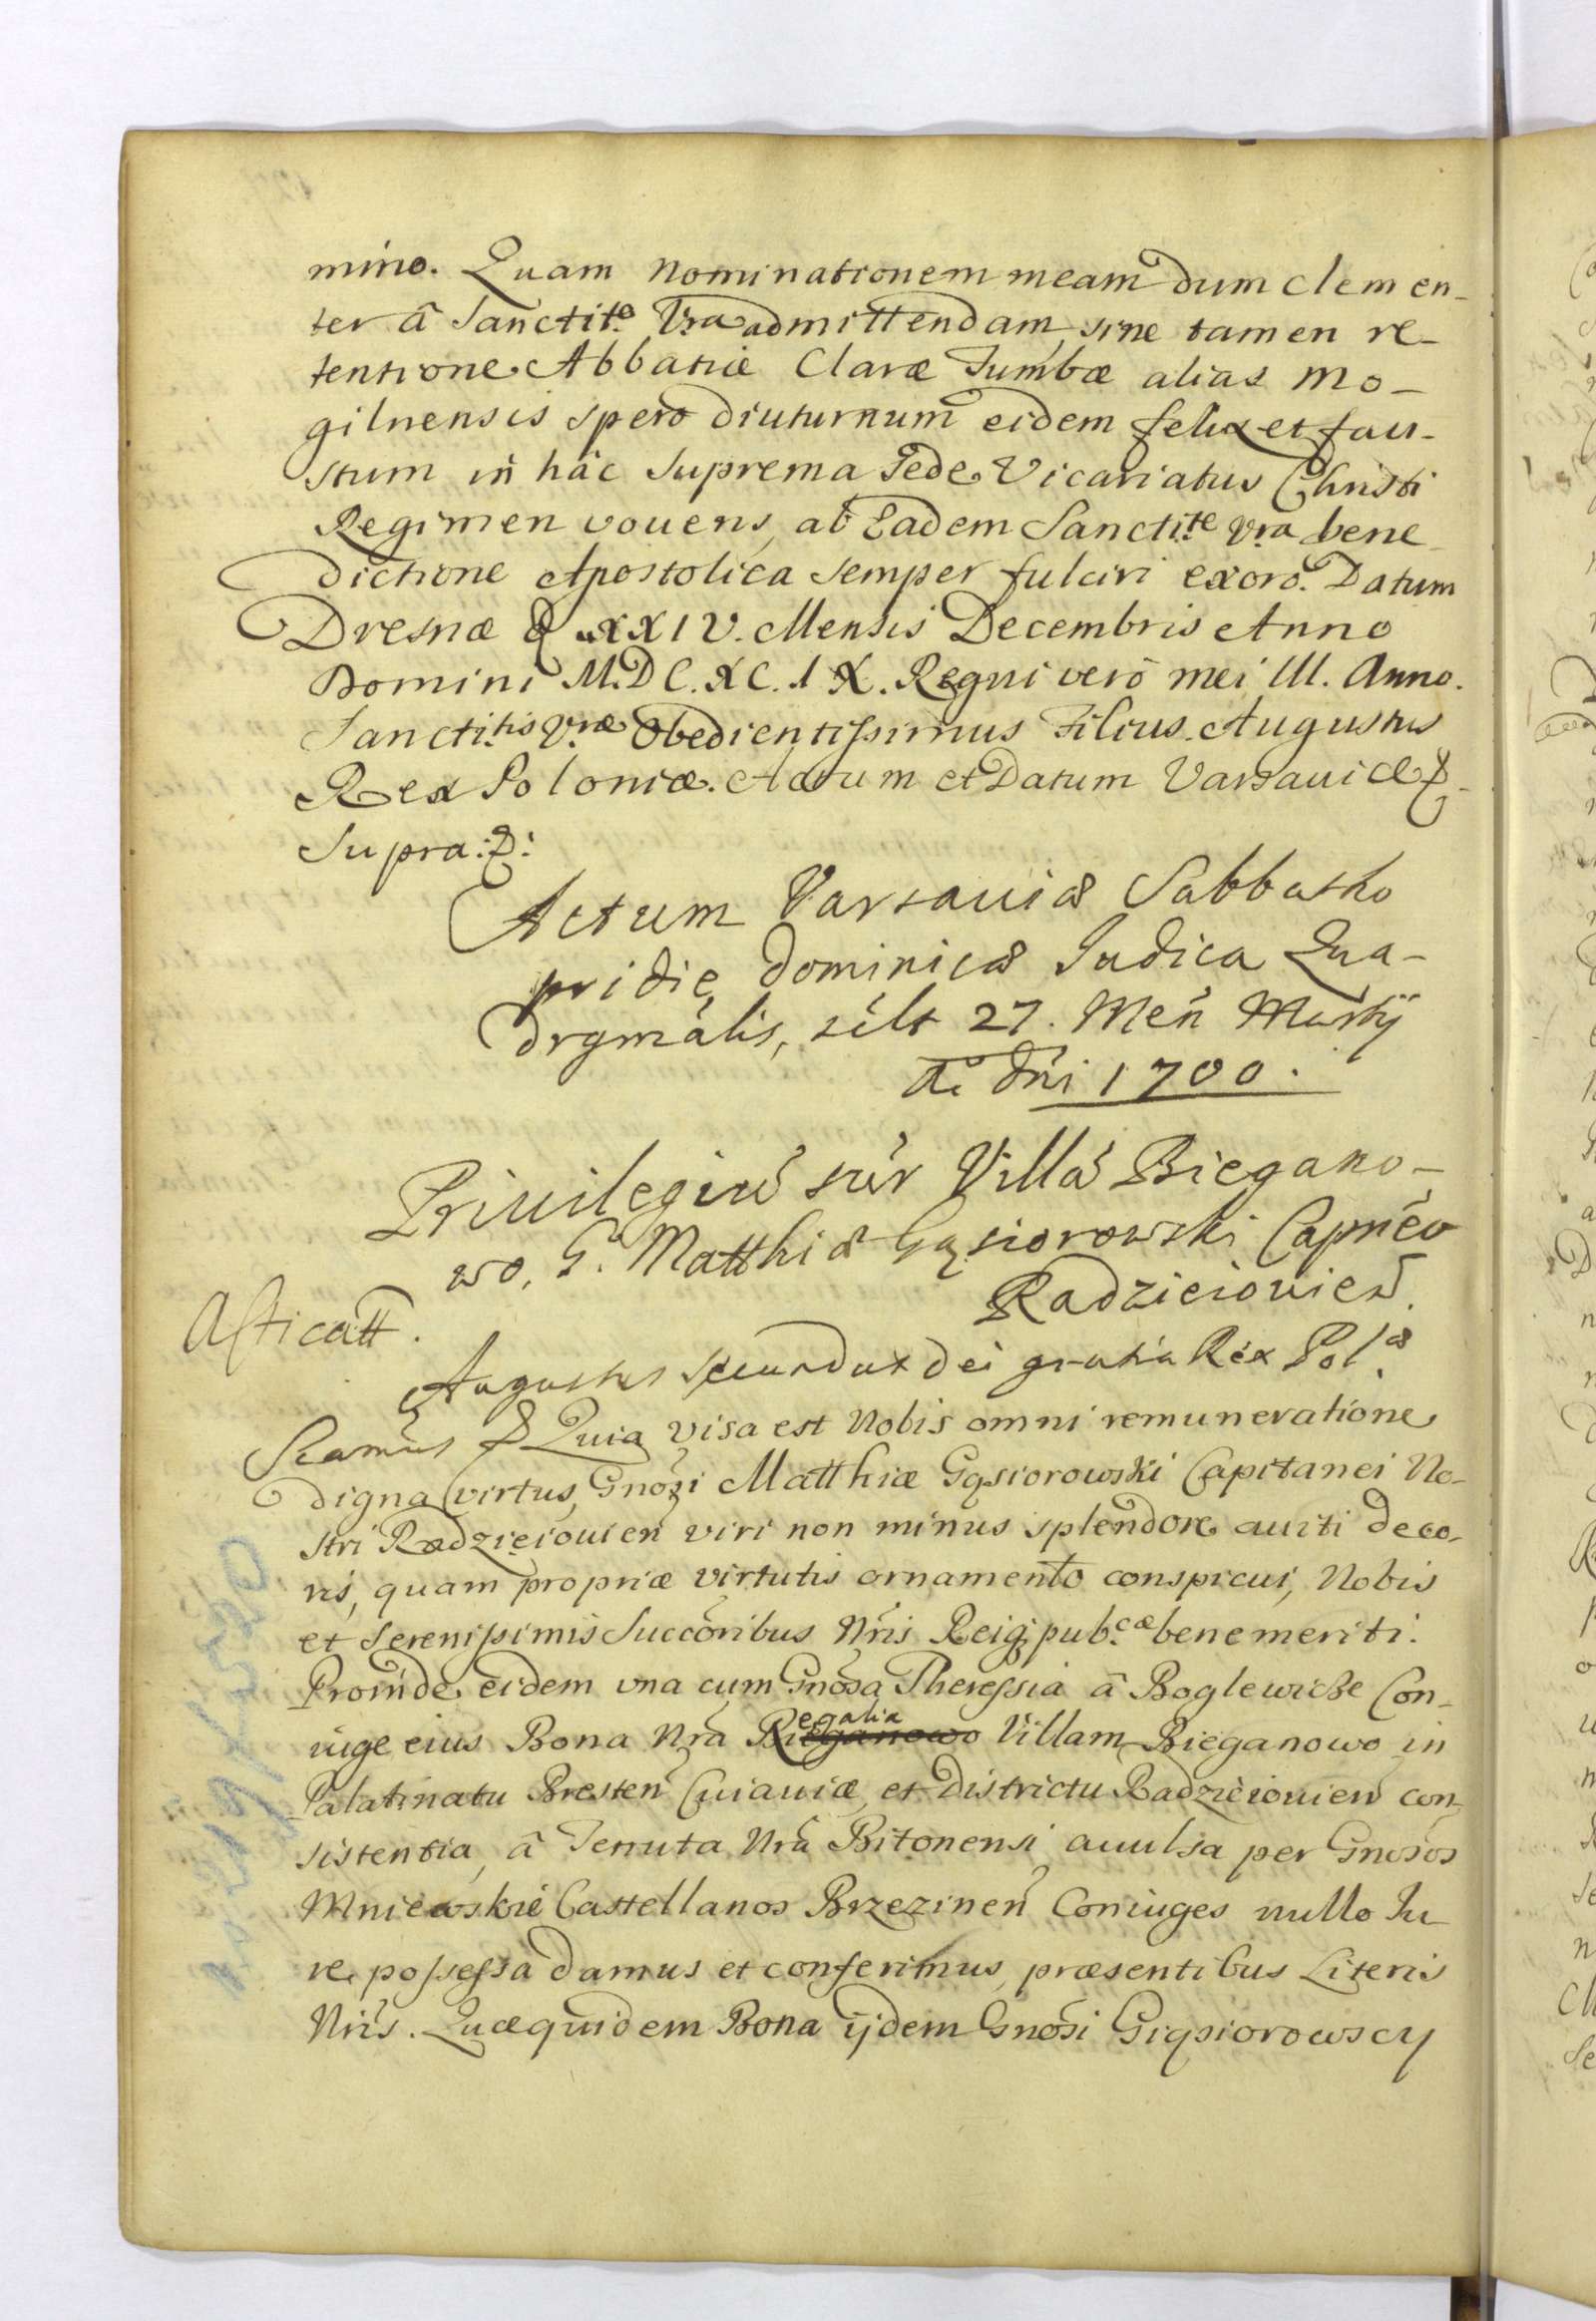 mino. Quam Nominationem meam dum clemen-
ter â Sanctit:e Vra admittendam, sine tamen re-
tentione Abbatiæ Claræ Tumbæ alias Mo-
gilnensis spero diuturnum eidem felix et fau-
stum in hâc Suprema Sede Vicariatus Christi
Regimen vouens, ab Eadem Sanctit:te Vra bene
dictione Apostolica semper fulciri exoro. Datum
Dresnæ D XXIV. Mensis Decembris Anno
Domini M.D C. XC. I X. Regni verò mei III. Anno.
Sanctit:tis Vræ Obedientissimus Filius. Augustus
Rex Poloniæ. Actum et Datum Varsauiæ
Supra.
Actum Varsauiæ Sabbatho
pridie Dominicæ Judica Qua-
drgmalis, silt 27. Men Martij
Ao Dni 1700.
Priuilegiu sur Villa Biegano-
wo, G. Matthiæ Gąsiorowski Capneo
Radzieiouien.
Asticatt.
Augustus Secundus Dei gratia Rex Pol:æ
Scamus Quia visa est Nobis omni remuneratione
digna virtus, Gnosi Matthiæ Gąsiorowski Capitanei No-
stri Radzieiouien viri non minus splendore auiti deco-
ris, quam propriæ virtutis ornamento conspicui, Nobis
et Serenissimis Succoribus Nris Reiq pub:cæ benemeriti.
Proinde eidem vna cum Gnosa Theressia â Boglewicze Con-
iuge eius Bona Nra Regalia Villam Bieganowo in
Palatinatu Bresten Cuiauiæ, et Districtu Radzieiouien con
sistentia, â Tenuta Nra Bitonensi auulsa per Gnosos
Mniewskie Castellanos Brzezinen Coniuges nullo Iu
re possessa damus et conferimus, præsentibus Literis
Nris. Quæquidem Bona ijdem Gnosi Giąsiorowscy